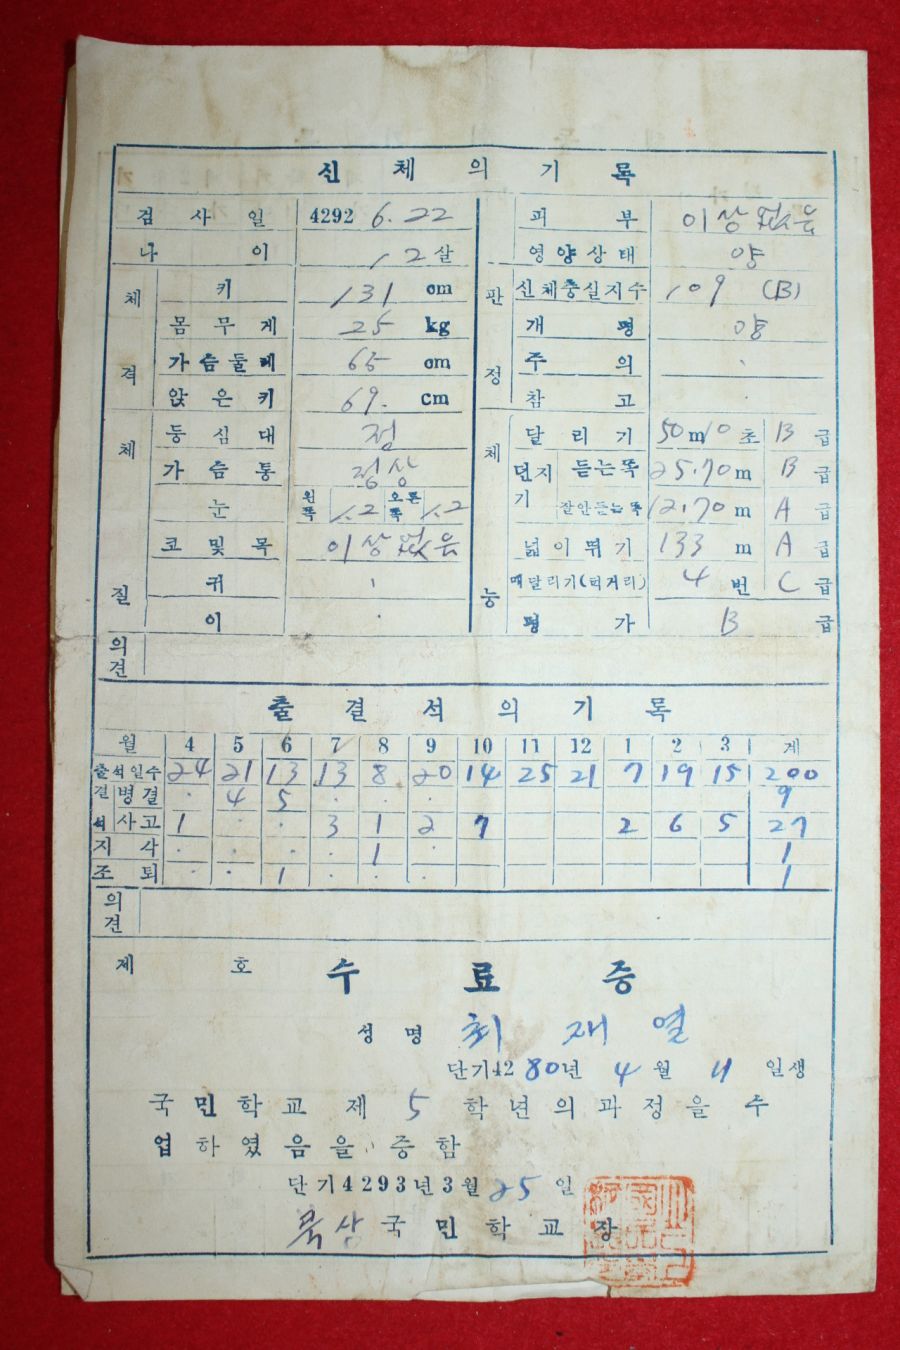 신체의기록
검사일 4292 6.22 피부 이상없음
나이 12살 영양상태 양
체격 키 131 cm 판정 신체충실지수 109 (B)
몸무게 25 kg 개평 양
가슴둘레 65 cm 주의
앉은키 69. cm 참고
체질 등심대 정 체능 달리기 50m 10초 B급
가슴통 정상 던지기 듣는쪽 25.70m B급
눈 왼쪽 1.2 오른쪽 1.2 잘안듣는쪽 12.70m A급
코및목 이상없음 넓이뛰기 133 m A급
귀 매달리기(턱거리) 4번 C급
이 평가 B급
의견
출결석의기록
월 4 5 6 7 8 9 10 11 12 1 2 3 계
출석일수 24 21 13 13 8 20 14 25 21 7 19 15 200
결석 병결 4 5 9
사고 1 3 1 2 7 2 6 5 27
지각 1 1
조퇴 1 1
의견
제 호 수료증
성명 최재열
단기4280년 4월 11일생
국민학교 제 5 학년의과정을 수
업하였음을 증함
단기4293년3월25일
북상국민학교장